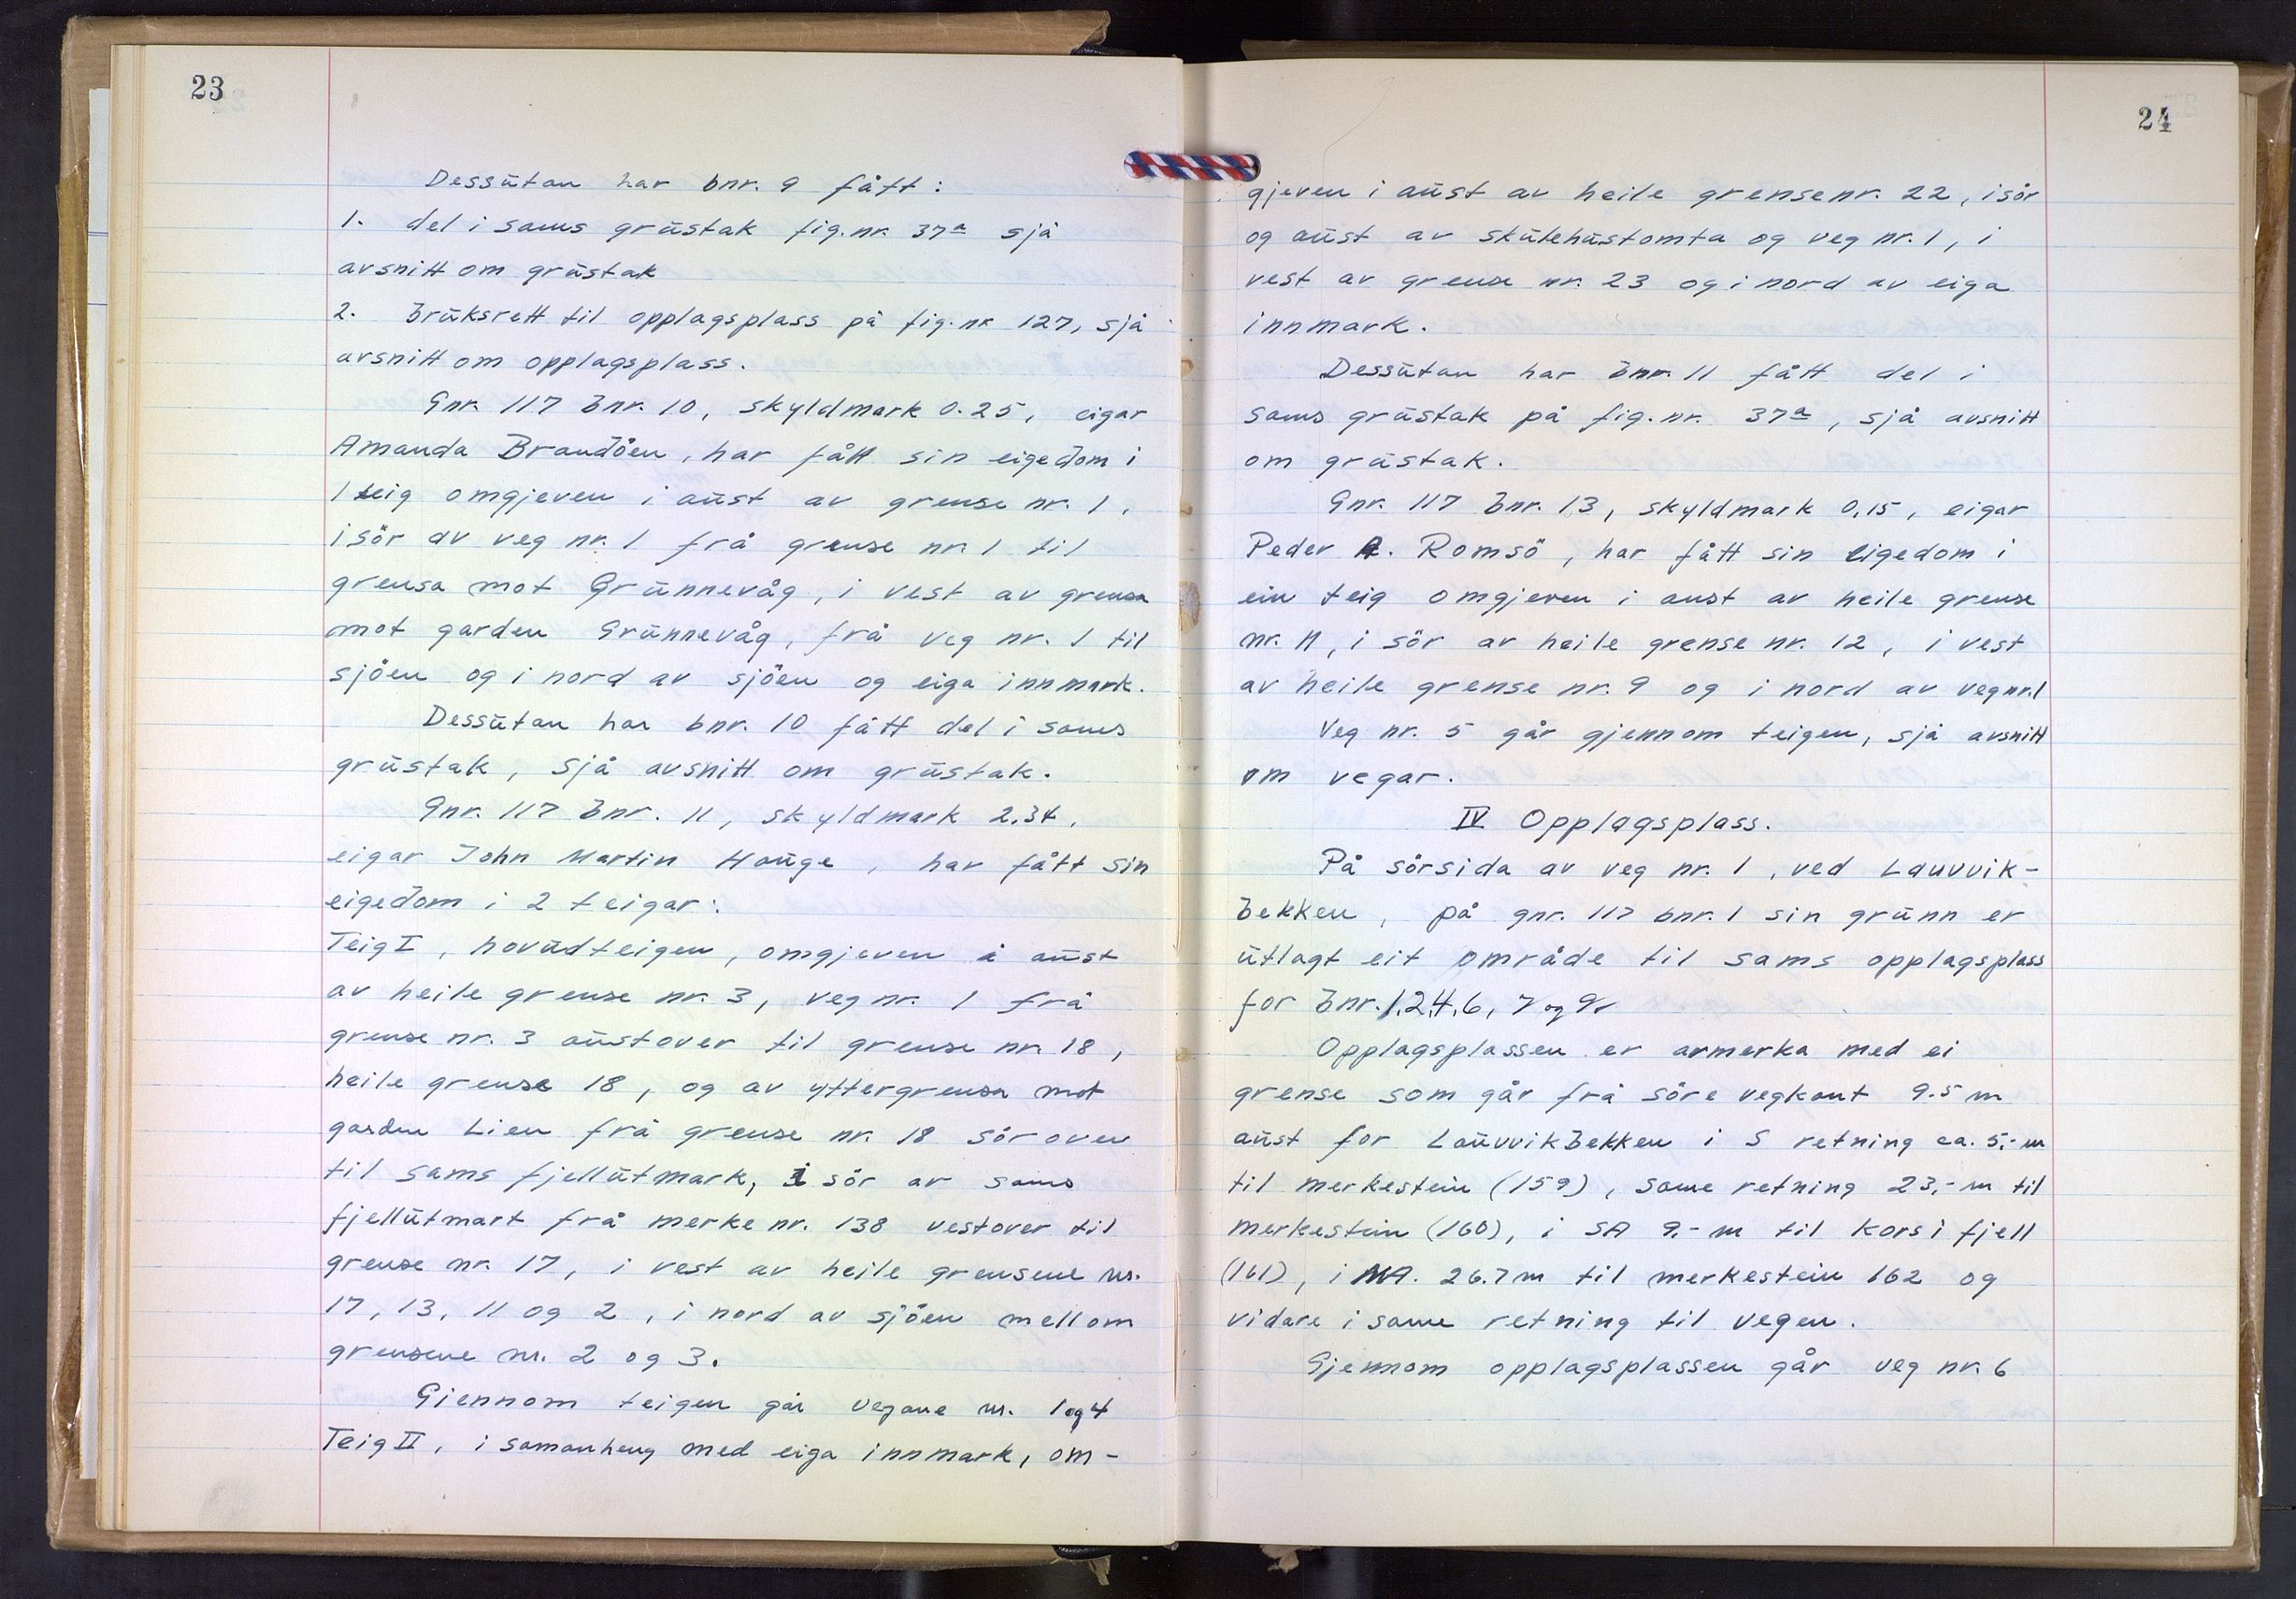 23
Dessutan har bnr. 9 fått:
1. del i sams grustak fig. nr. 37a sjå
avsnitt om grustak
2. bruksrett til opplagsplass på fig. nr 127, sjå
avsnitt om opplagsplass.
Gnr. 117 bnr. 10, skyldmark 0.25, eigar
Amanda Brandöen, har fått sin eigedom i
1 teig omgjeven i aust av grense nr. 1,
i sör av veg nr. 1 frå grense nr. 1 til
grensa mot Grunnevåg, i vest av grensa
mot garden Grunnevåg, frå veg nr. 1 til
sjöen og i nord av sjöen og eiga innmark.
Dessutan har bnr. 10 fått del i sams
grustak, sjå avsnitt om grustak.
Gnr. 117 bnr. 11, skyldmark 2.34,
eigar John Martin Hauge, har fått sin
eigedom i 2 teigar:
Teig I, hovudteigen, omgjeven i aust
av heile grense nr. 3, veg nr. 1 frå
grense nr. 3 austover til grense nr. 18,
heile grense 18, og av yttergrensa mot
garden Lien frå grense nr. 18 sörover
til sams fjellutmark, i sör av sams
fjellutmart frå merke nr. 138 vestover til
grense nr. 17, i vest av heile grensene nr.
17, 13, 11 og 2, i nord av sjöen mellom
grensene nr. 2 og 3.
Gjennom teigen går vegane nr. 1 og 4
Teig II, i samanheng med eiga innmark, om-
24
gjeven i aust av heile grense nr. 22, i sör
og aust av skulehustomta og veg nr. 1, i
vest av grense nr. 23 og i nord av eiga
innmark.
Dessutan har bnr. 11 fått del i
sams grustak på fig. nr. 37a, sjå avsnitt
om grustak.
Gnr. 117 bnr. 13, skyldmark 0,15, eigar
Peder A. Romsö, har fått sin eigedom i
ein teig omgjeven i aust av heile grense
nr. 11, i sör av heile grense nr. 12, i vest
av heile grense nr. 9 og i nord av veg nr. 1
Veg nr. 5 går gjennom teigen, sjå avsnitt
om vegar.
IV Opplagsplass.
På sörsida av veg nr. 1, ved Lauvvik-
bekken, på gnr. 117 bnr. 1 sin grunn er
utlagt eit område til sams opplagsplass
for bnr. 1, 2, 4, 6, 7 og 9.
Opplagsplassen er avmerka med ei
grense som går frå söre vegkant 9.5 m
aust for Lauvvikbekken i S retning ca. 5,- m
til merkestein (159), same retning 23,- m til
merkestein (160), i SA 9,- m til kors i fjell
(161), i NA. 26.7 m til merkestein 162 og
vidare i same retning til vegen.
Gjennom opplagsplassen går veg nr. 6